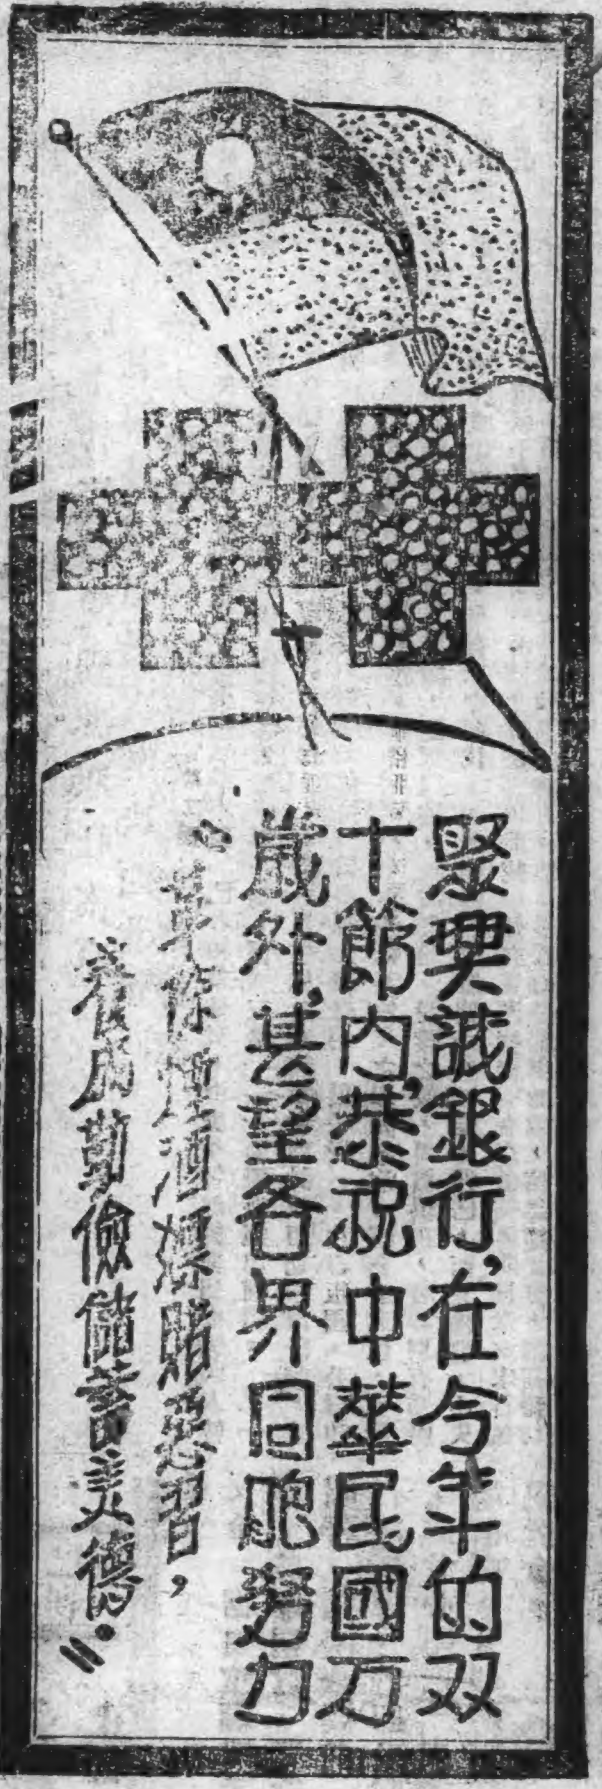 聚興誠銀行,在今年的双
十節內,恭祝 中華民國万
歲外,甚望各界同胞努力
“革除煙酒嫖賭惡習,
養成勤儉儲蓄美德。”